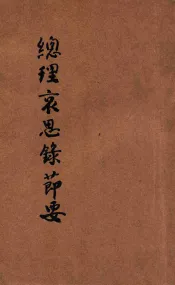 總理哀思錄節要